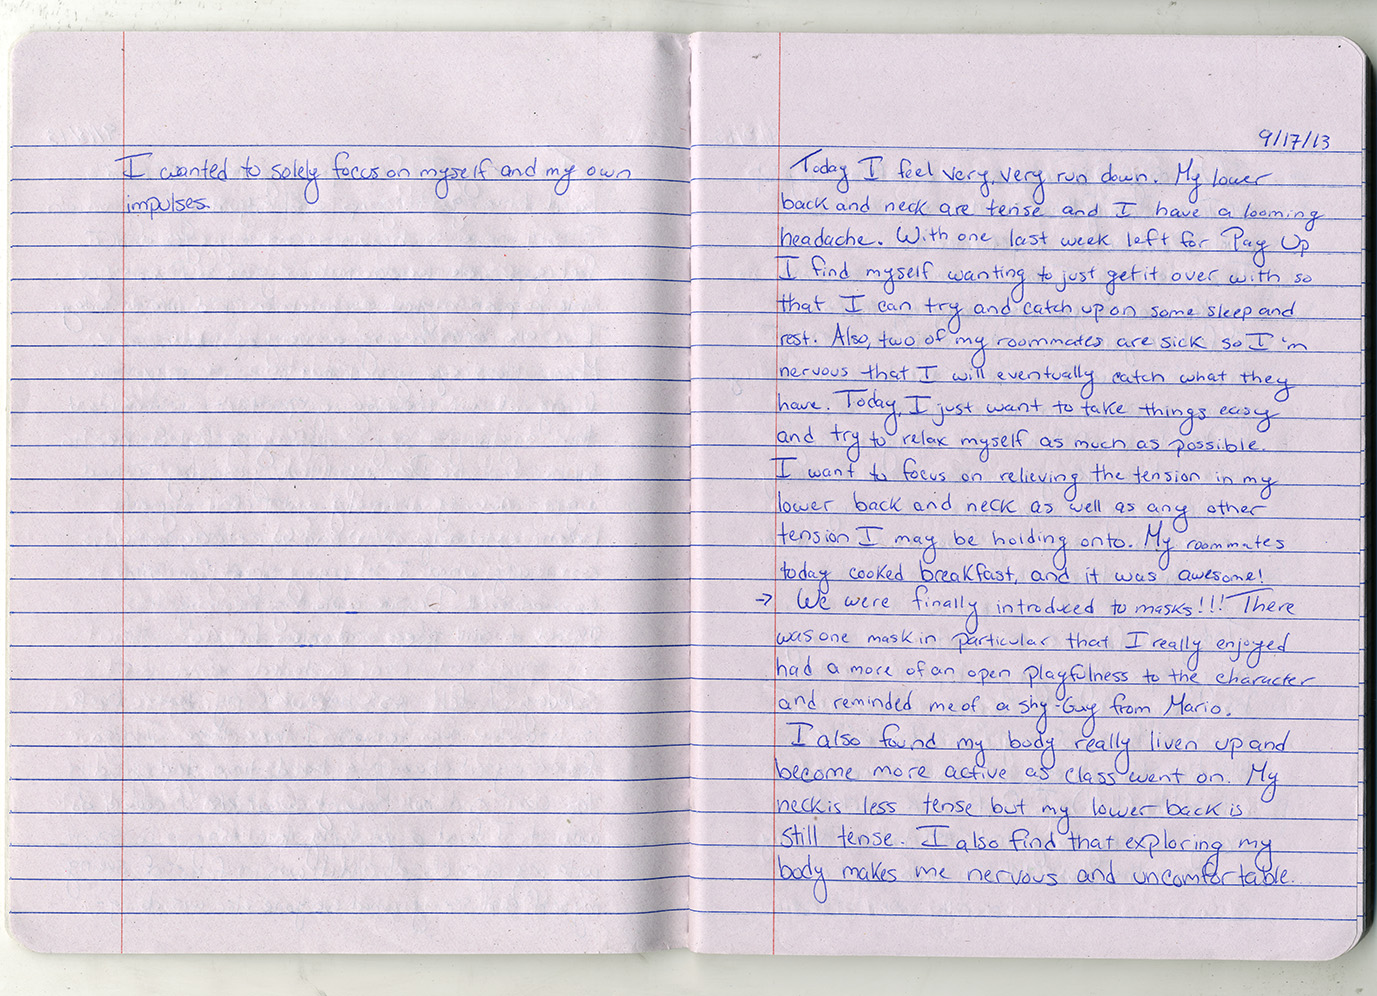 I wanted to solely focus on myself and my own
impulses.
9/17/13
Today I feel very, very run down. My lower
back and neck are tense and I have a looming
headache. With one last week left for Pay Up
I find myself wanting to just get it over with so
that I can try and catch up on some sleep and
rest. Also, two of my roommates are sick so I'm
nervous that I will eventually catch what they
have. Today, I just want to take things easy
and try to relax myself as much as possible.
I want to focus on relieving the tension in my
lower back and neck as well as any other
tension I may be holding onto. My roommates
today cooked breakfast, and it was awesome!
→ We were finally introduced to masks!!! There
was one mask in particular that I really enjoyed
had a more of an open playfulness to the character
and reminded me of a Shy-Guy from Mario.
I also found my body really liven up and
become more active as class went on. My
neck is less tense but my lower back is
still tense. I also find that exploring my
body makes me nervous and uncomfortable.